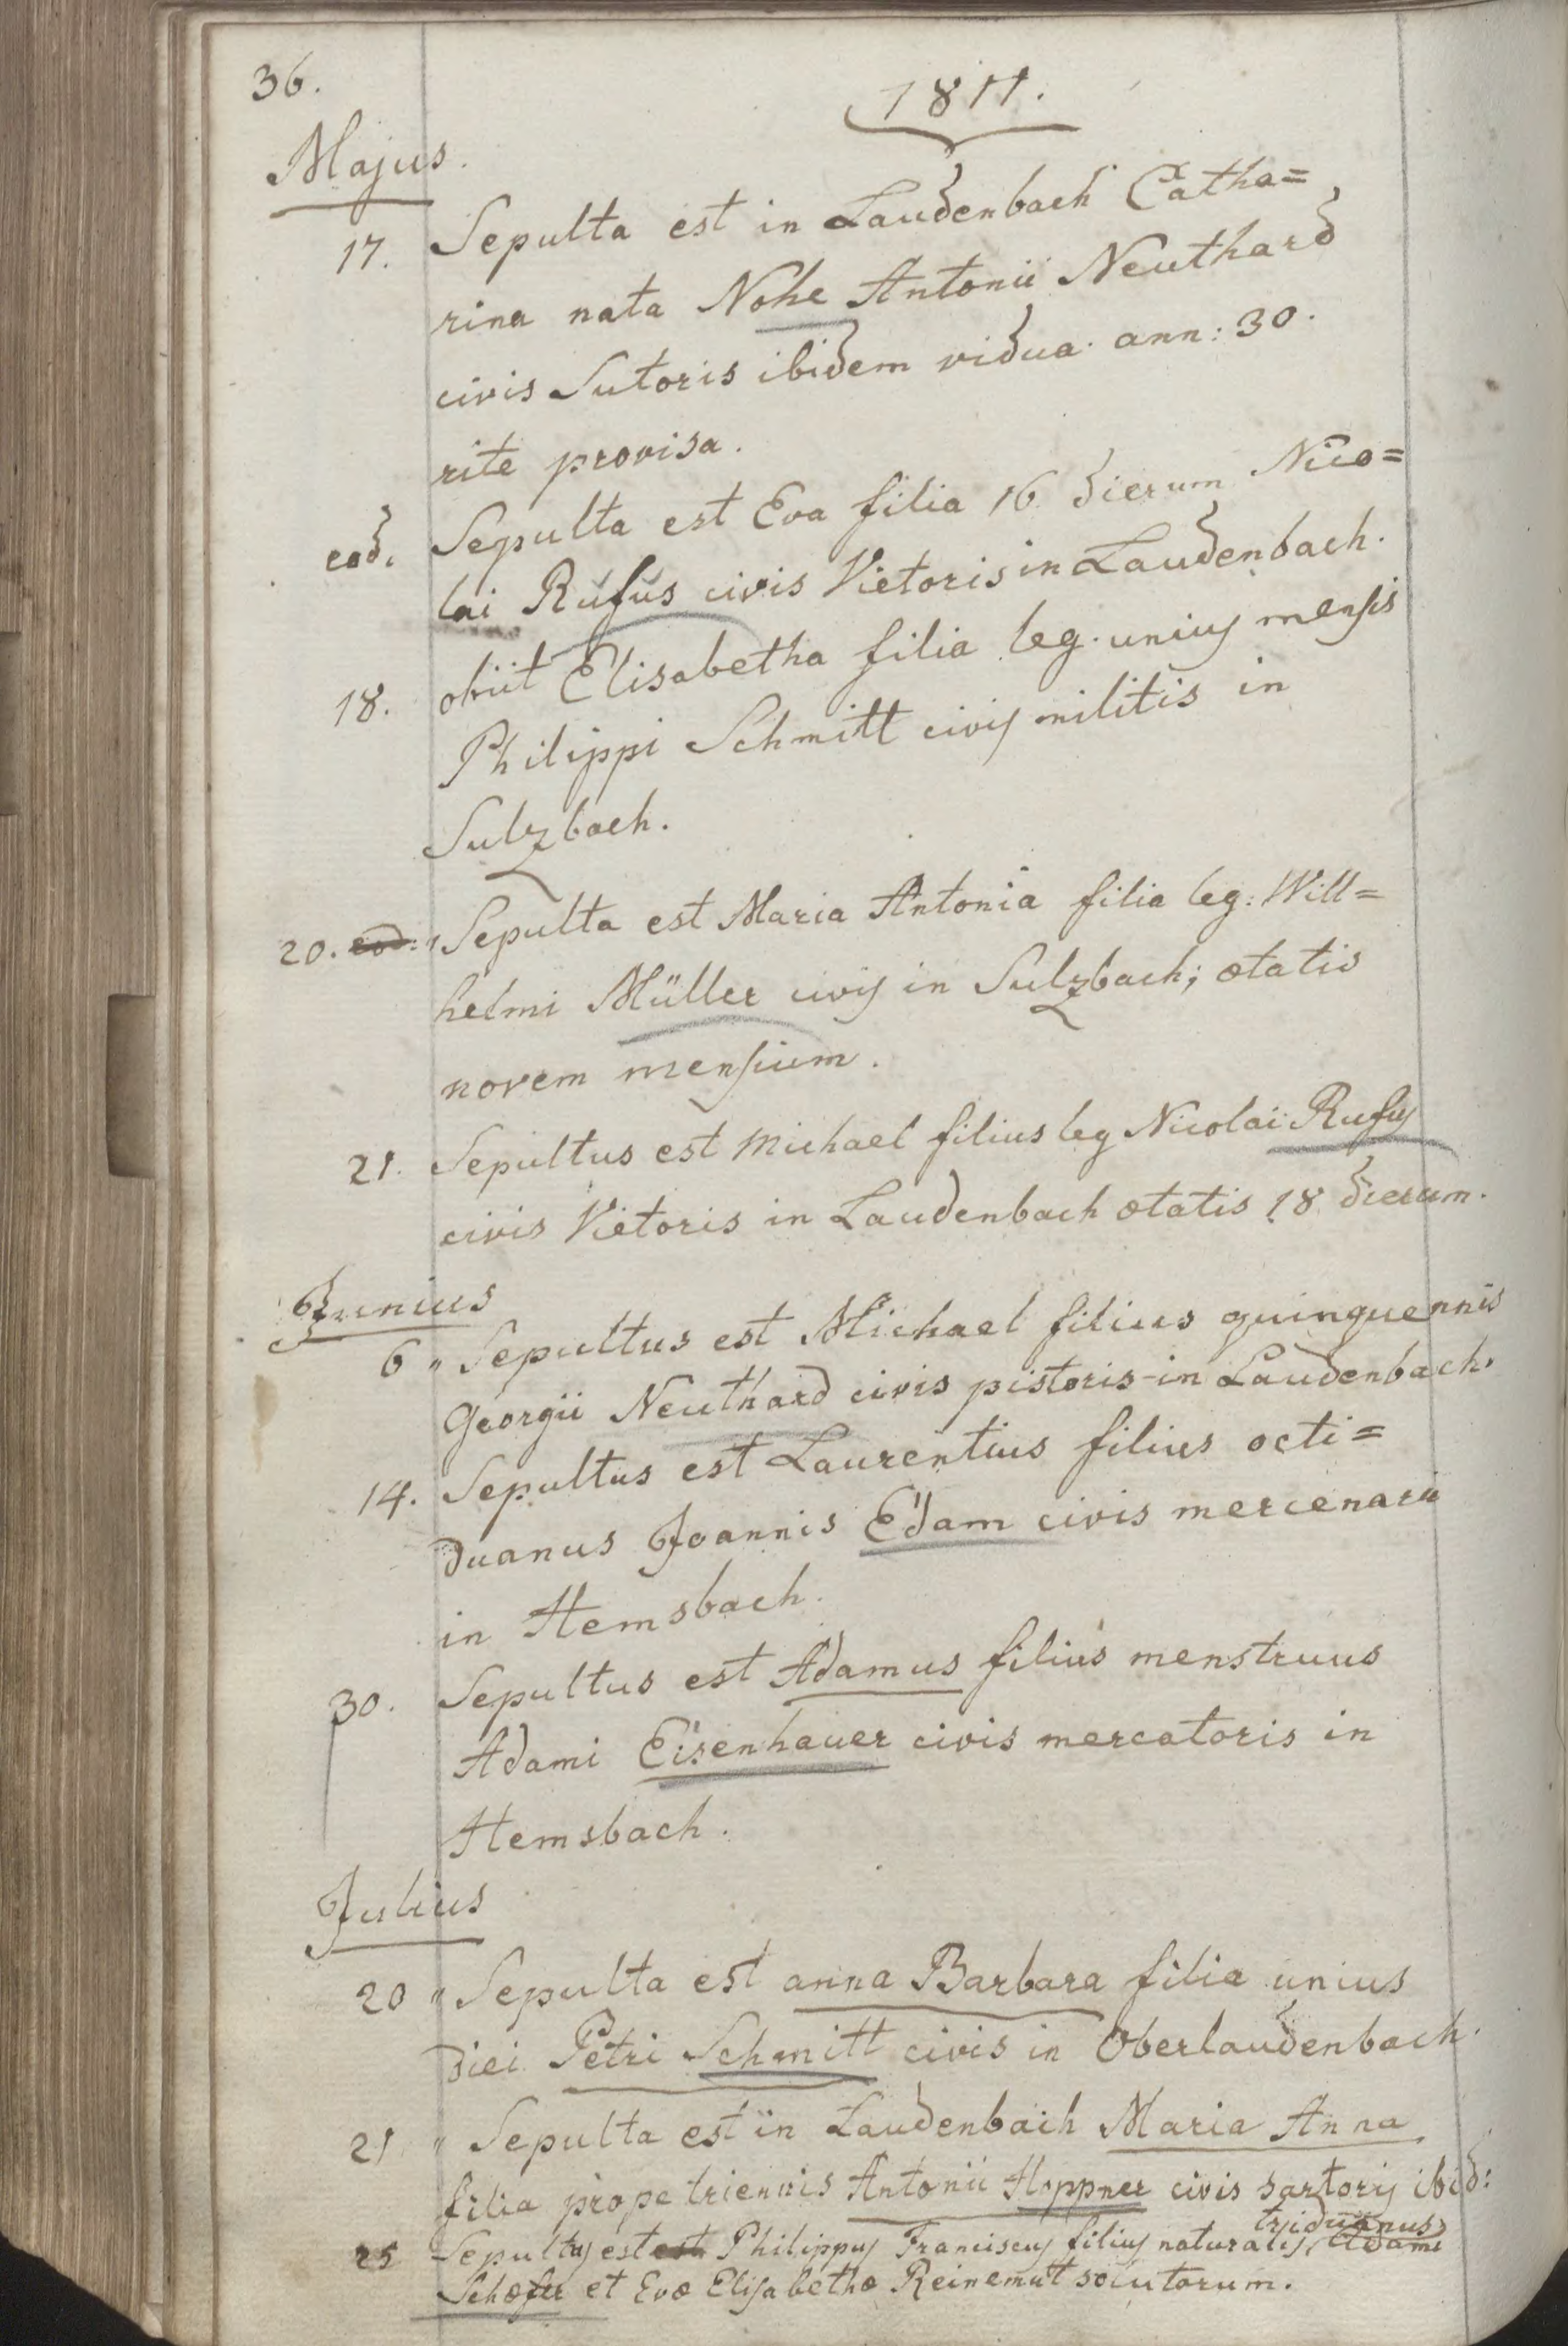 36.
1811.
Majus.
17. Sepulta est in Laudenbach Catha=
rina nata Nohe Antonii Neuthard
civis Sutoris ibidem vidua. ann: 30.
rite provisa.
eod. Sepulta est Eva filia 16 dierum Nico=
lai Rufus civis Vietoris in Laudenbach.
18. obiit Elisabetha filia leg. unius mensis
Philippi Schmitt civis militis in
Sulzbach.
20. eod: Sepulta est Maria Antonia filia leg: Will=
helmi Müller civis in Sulzbach; ætatis
novem mensium.
21. Sepultus est Michael filius leg Nicolai Rufus
civis Vietoris in Laudenbach ætatis 18 dierum.
Junius
6 " Sepultus est Michael filius quinquennis
Georgii Neuthard civis pistoris in Laudenbach.
14. Sepultus est Laurentius filius octi=
duanus Joannis Edam civis mercenarii
in Hemsbach.
30. Sepultus est Adamus filius menstruus
Adami Eisenhauer civis mercatoris in
Hemsbach.
Julius
20 " Sepulta est anna Barbara filia unius
diei Petri Schmitt civis in Oberlaudenbach.
21 " Sepulta est in Laudenbach Maria Anna
filia prope triennis Antonii Hoppner civis sartoris ibid:
triduanus
25 Sepultus est est Philippus Franciscus filius naturalis, Adami
Schæfer et Evæ Elisabethæ Reinemut solutorum.